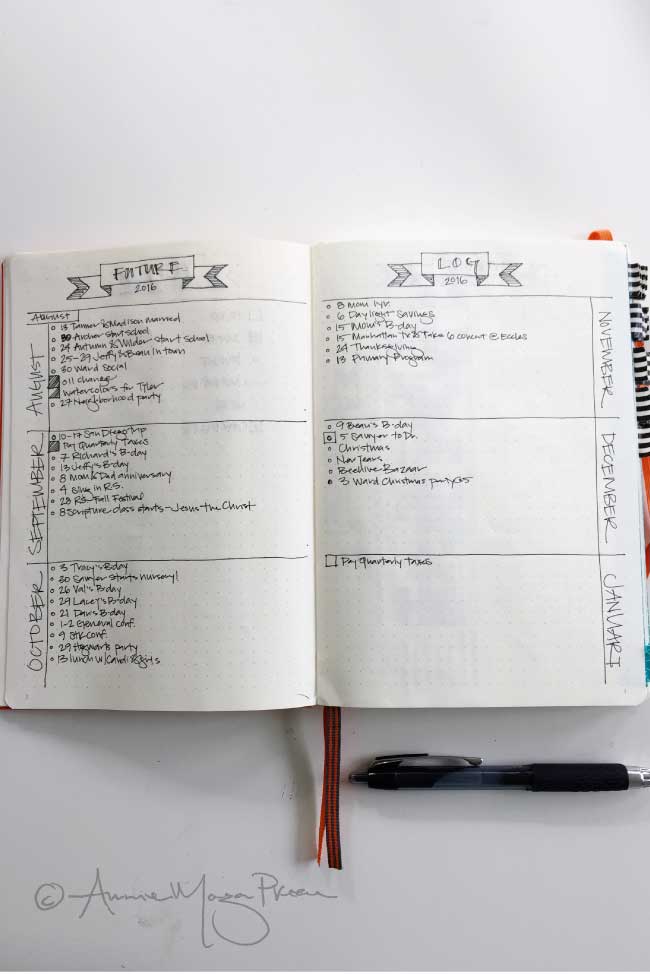 FUTURE
2016
AUGUST
AUGUST
13 Tanner & Madison married
Archer start school
24 Autumn & Wilder start school
25-29 Jeffy & Beau in town
30 Ward Social
oil change
watercolors for Tyler
27 Neighborhood party
SEPTEMBER
10-17 San Diego Trip
Pay Quarterly Taxes
7 Richard's B-day
13 Jeffy's B-day
8 Mom & Dad anniversary
4 in R.S.
28 R.S. Fall Festival
8 Scripture class starts - Jesus the Christ
OCTOBER
3 Tracy's B-day
30 Sawyer starts nursery!
26 Val's B-day
29 Lacey's B-day
21 Dan's B-day
1-2 General conf.
9 Stk conf.
29 Hogwarts party
13 lunch w/ Candi & girls
LOG
2016
NOVEMBER
8 Mom 1yr.
6 Daylight Savings
15 Mom's B-day
15 Manhattan & Take 6 concert @ Eccles
24 Thanksgiving
13 Primary Program
DECEMBER
9 Beau's B-day
5 Sawyer to Dr.
Christmas
New Years
Beehive Bazaar
3 Ward Christmas party
JANUARY
Pay Quarterly taxes
© Annie